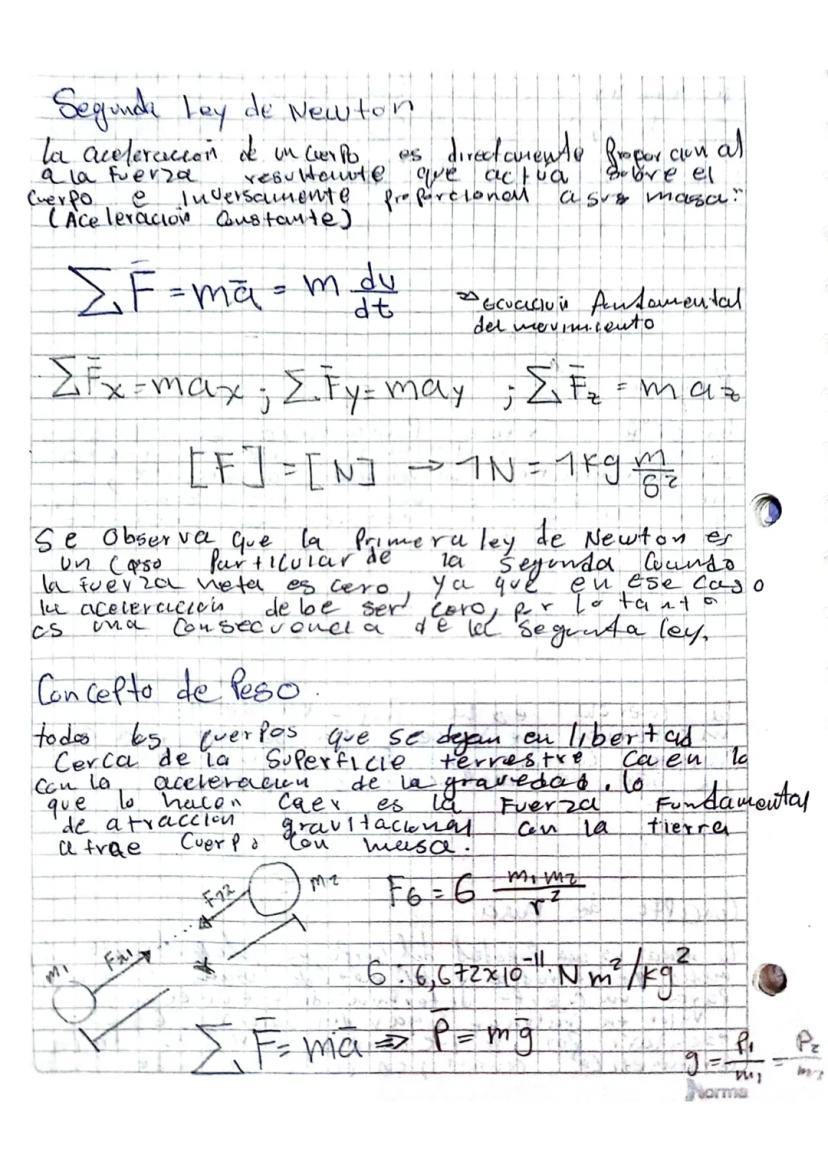 Segunda Ley de Newton
La aceleracion de un cuerpo es directamente proporcional
a la fuerza resultante que actua sobre el
Cuerpo e inversamente proporcional a su masa:
(Aceleracion Constante)
∑F̄ = mā = m dv/dt
ecuacion fundamental
del movimiento
∑F̄x = max ; ∑F̄y = may ; ∑F̄z = maz
[F] = [N] → 1N = 1kg m/s²
Se Observa que la Primera ley de Newton es
un caso Particular de la segunda Cuando
la fuerza neta es cero, ya que en ese caso
la aceleracion debe ser cero, por lo tanto
es una Consecuencia de la Segunda ley.
Concepto de Peso.
todos los cuerpos que se dejan en libertad
Cerca de la Superficie terrestre Caen lo
con la aceleracion de la gravedad. lo
que lo hacen Caer es la Fuerza Fundamental
de atraccion gravitacional con la tierra
atrae Cuerpo con masa.
F12 m2
FG = G m1 m2 / r²
m1 F21
G: 6,672x10⁻¹¹ N m²/kg²
∑F̄ = mā ⇒ P̄ = mḡ
g = P1/m1 = P2/m2
Norma